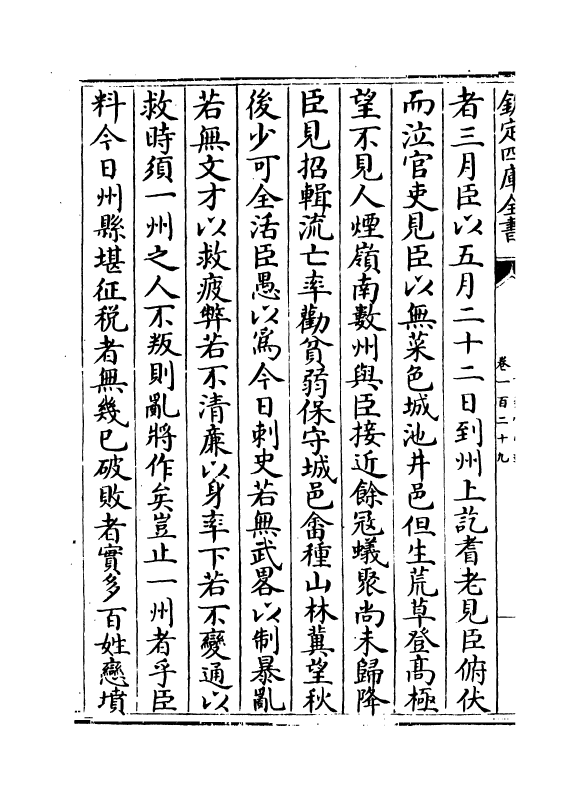 欽定四庫全書
卷一百二十九
者三月臣以五月二十二日到州上訖耆老見臣俯伏
而泣官吏見臣以無菜色城池井邑但生荒草登高極
望不見人煙嶺南數州與臣接近餘寇蟻聚尚未歸降
臣見招輯流亡率勸貧弱保守城邑畬種山林冀望秋
後少可全活臣愚以為今日刺史若無武畧以制暴亂
若無文才以救疲弊若不清廉以身率下若不變通以
救時須一州之人不叛則亂將作矣豈止一州者乎臣
料今日州縣堪征税者無幾已破敗者實多百姓戀墳